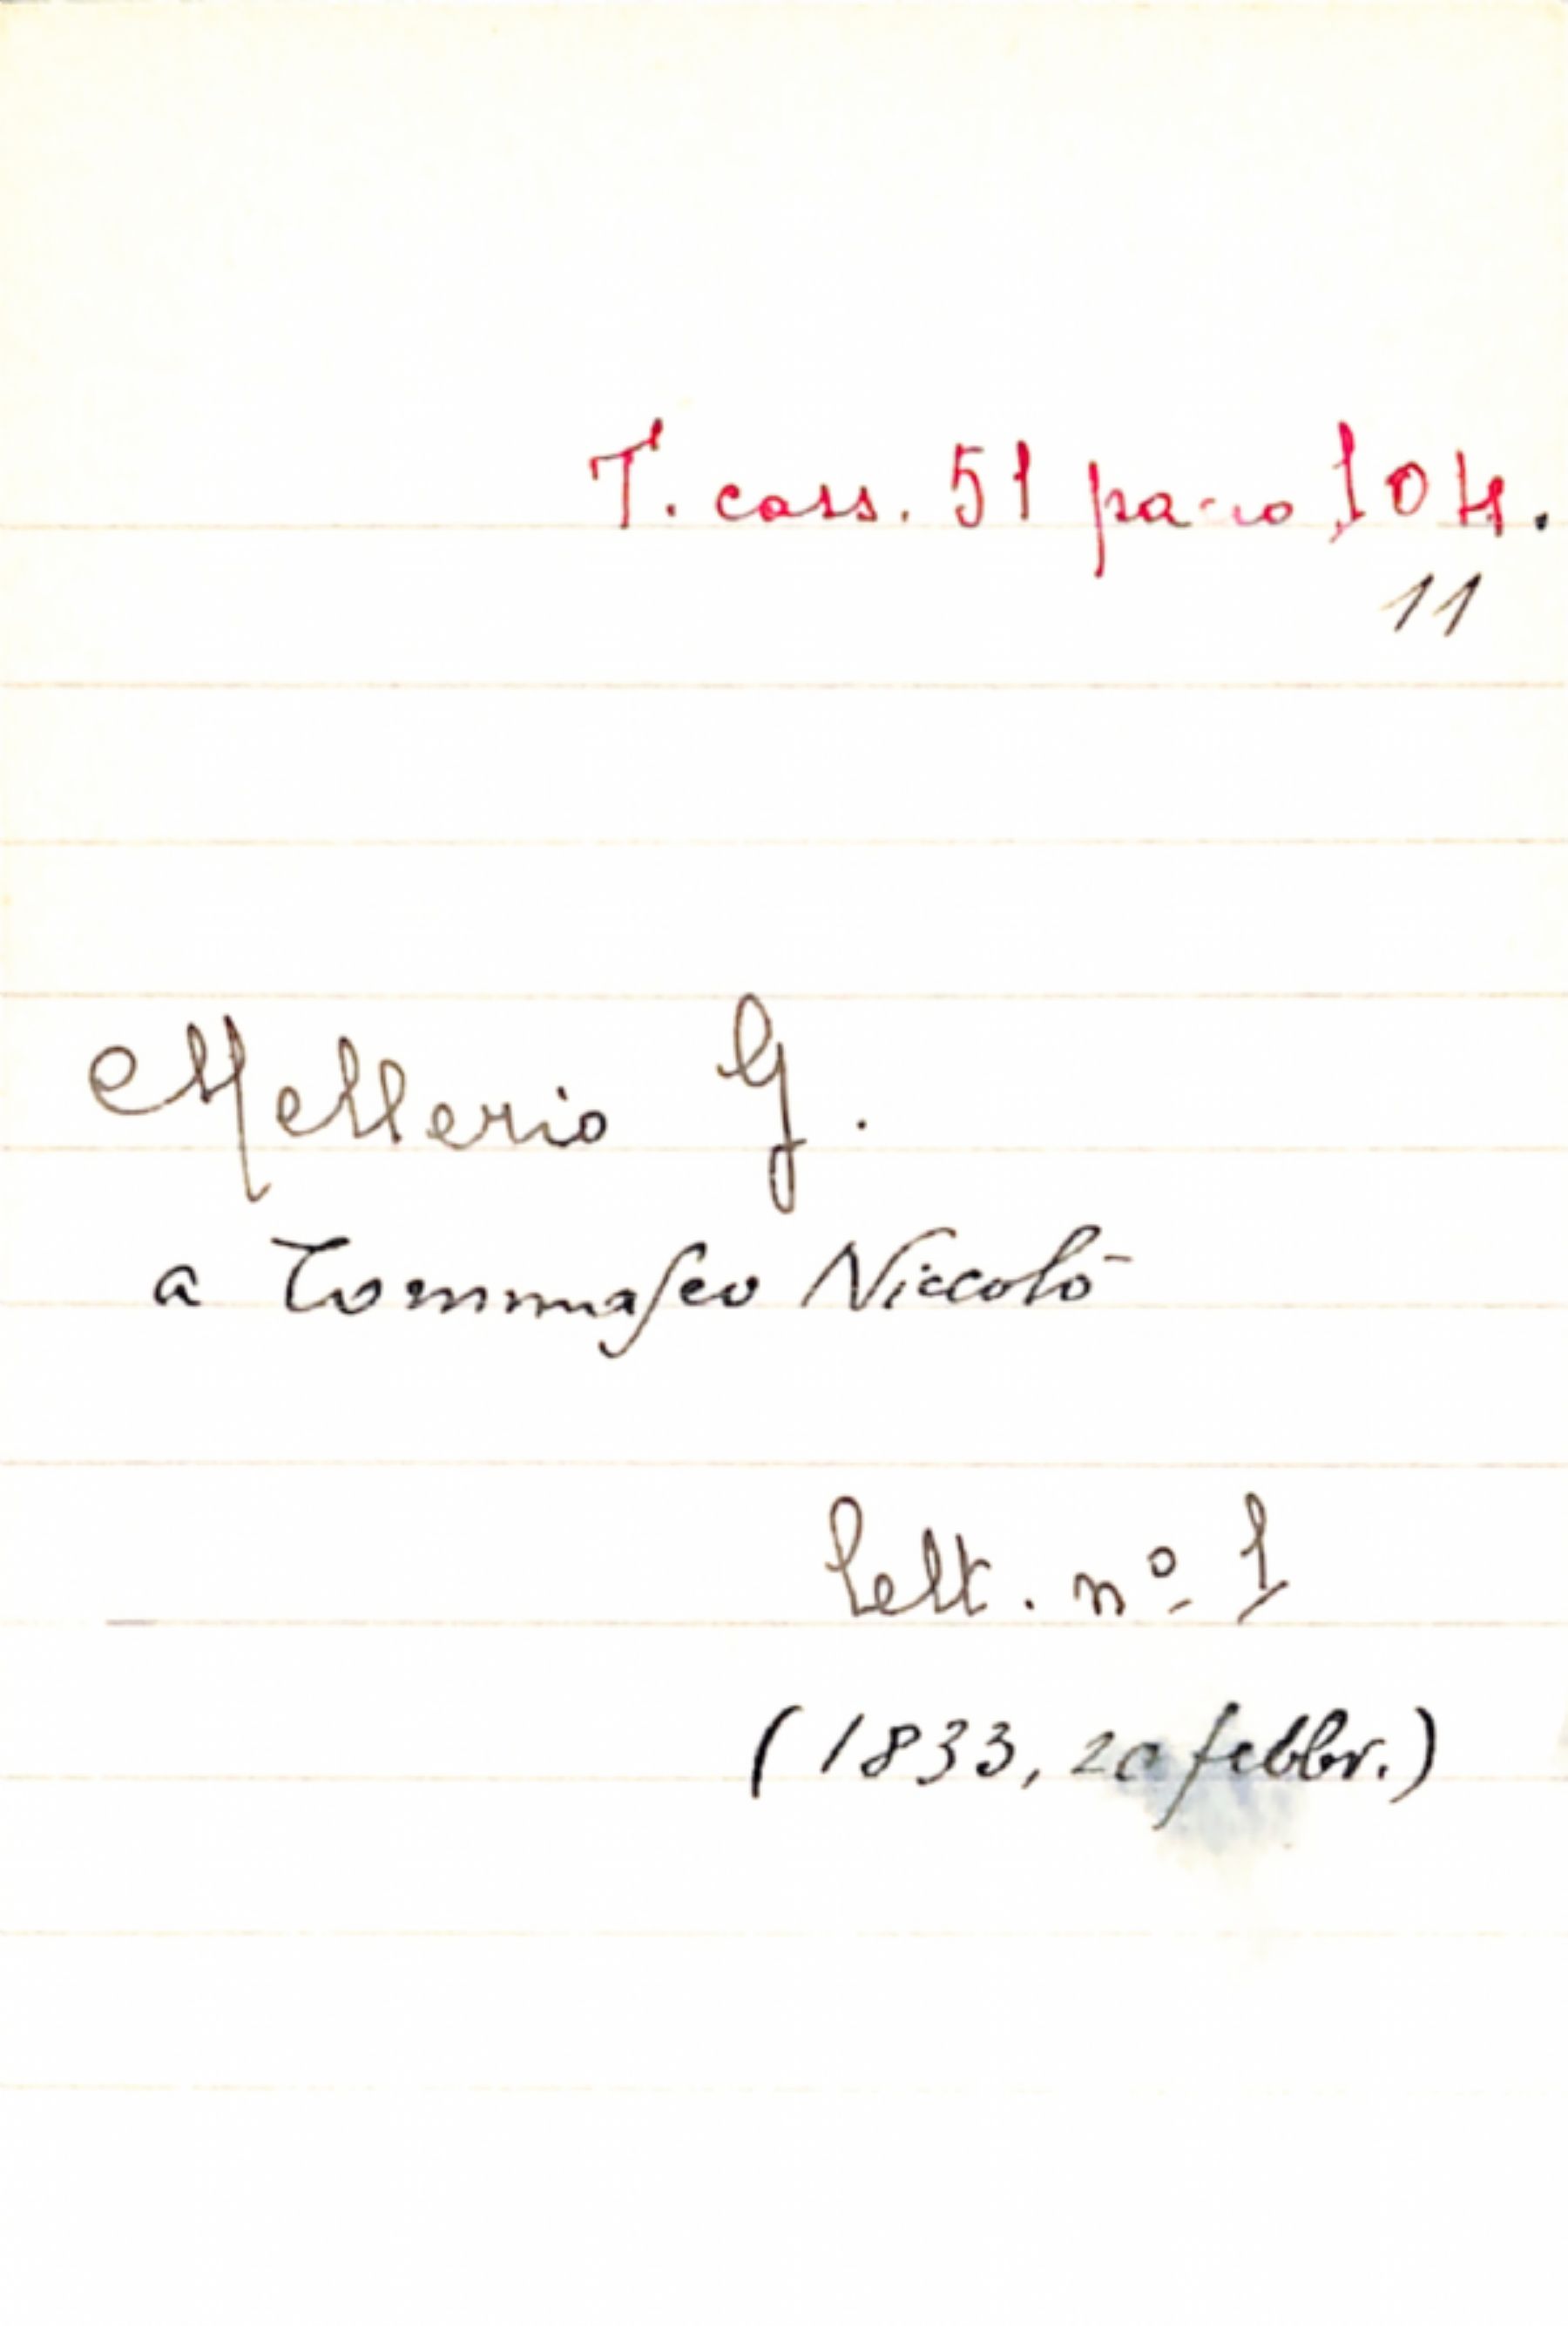 T. cass. 51 pa-co 104.
11
Mellerio G.
a Tommaseo Niccolò
Lett. nº 1
(1833, 20 febbr.)